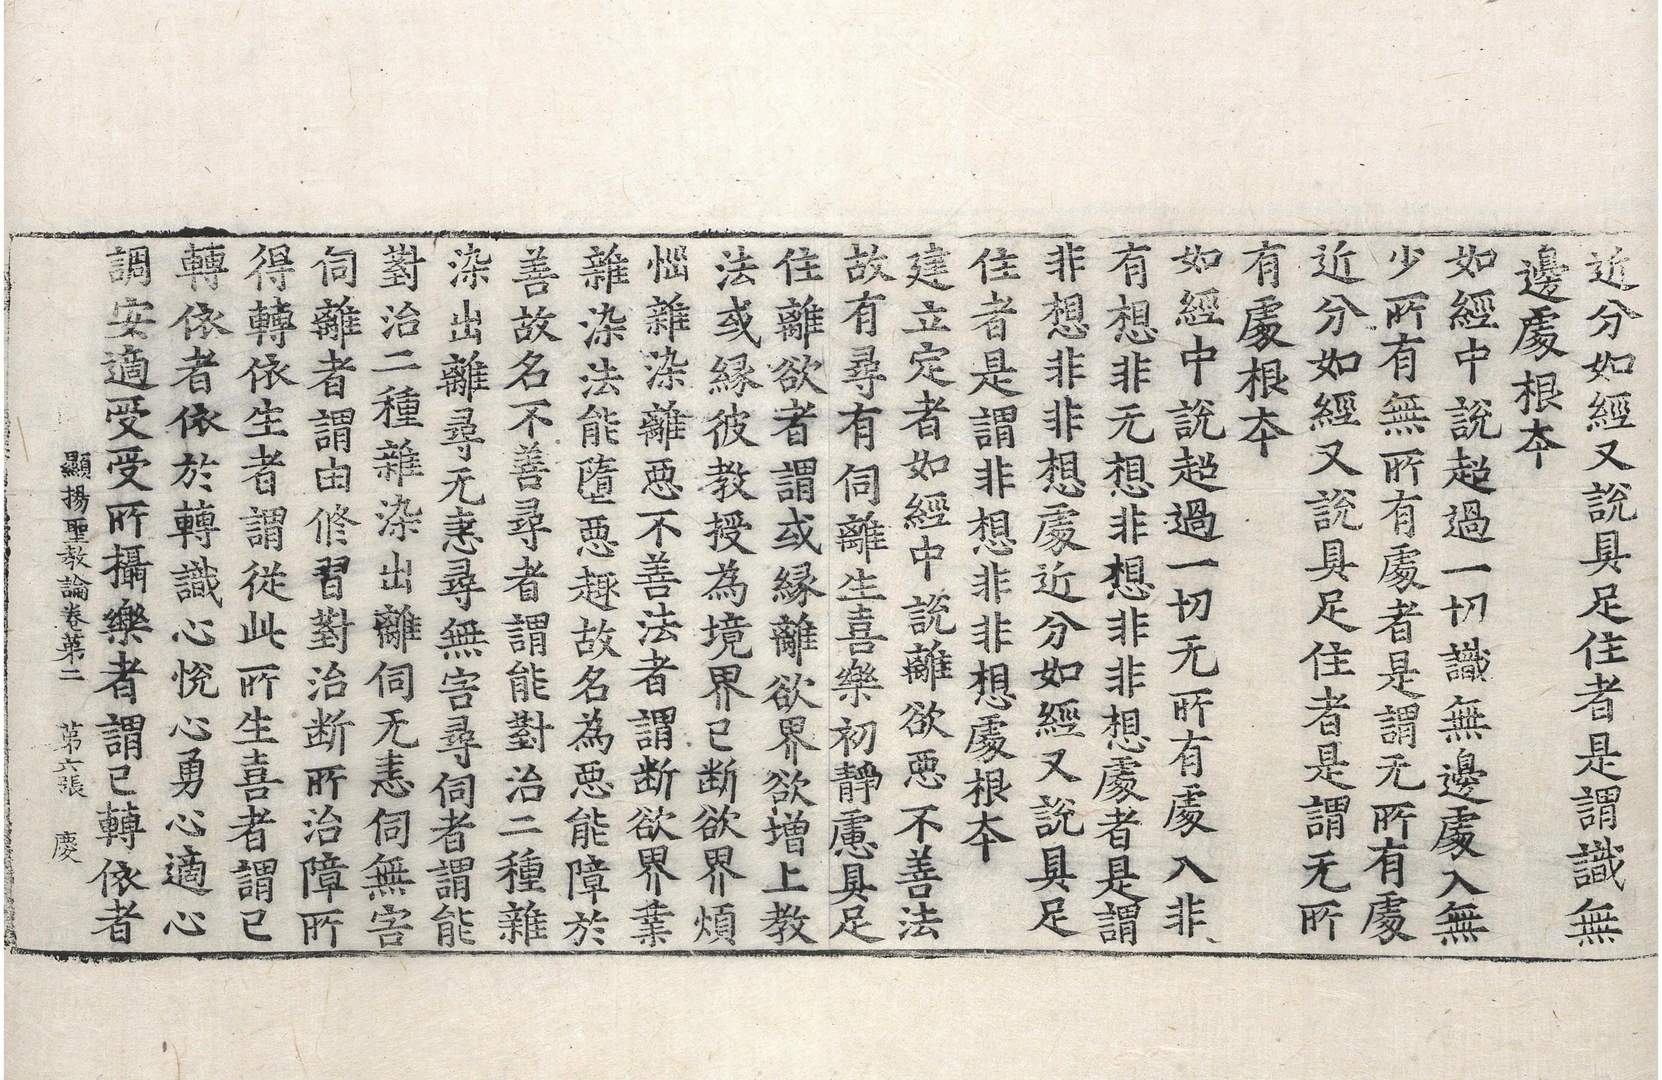 近分如經又說具足住者是謂識無
邊處根本
如經中說超過一切識無邊處入無
少所有無所有處者是謂无所有處
近分如經又說具足住者是謂无所
有處根本
如經中說超過一切无所有處入非
有想非无想非想非非想處者是謂
非想非非想處近分如經又說具足
住者是謂非想非非想處根本
建立定者如經中說離欲惡不善法
故有尋有伺離生喜樂初靜慮具足
住離欲者謂或緣離欲界欲增上教
法或緣彼教授為境界已断欲界煩
惱雜染離惡不善法者謂断欲界業
雜染法能墮惡趣故名為惡能障於
善故名不善尋者謂能對治二種雜
染出離尋无恚尋無害尋伺者謂能
對治二種雜染出離伺无恚伺無害
伺離者謂由修習對治断所治障所
得轉依生者謂從此所生喜者謂已
轉依者依於轉識心悅心勇心適心
調安適受受所攝樂者謂已轉依者
顯揚聖教論卷第二 第六張 慶